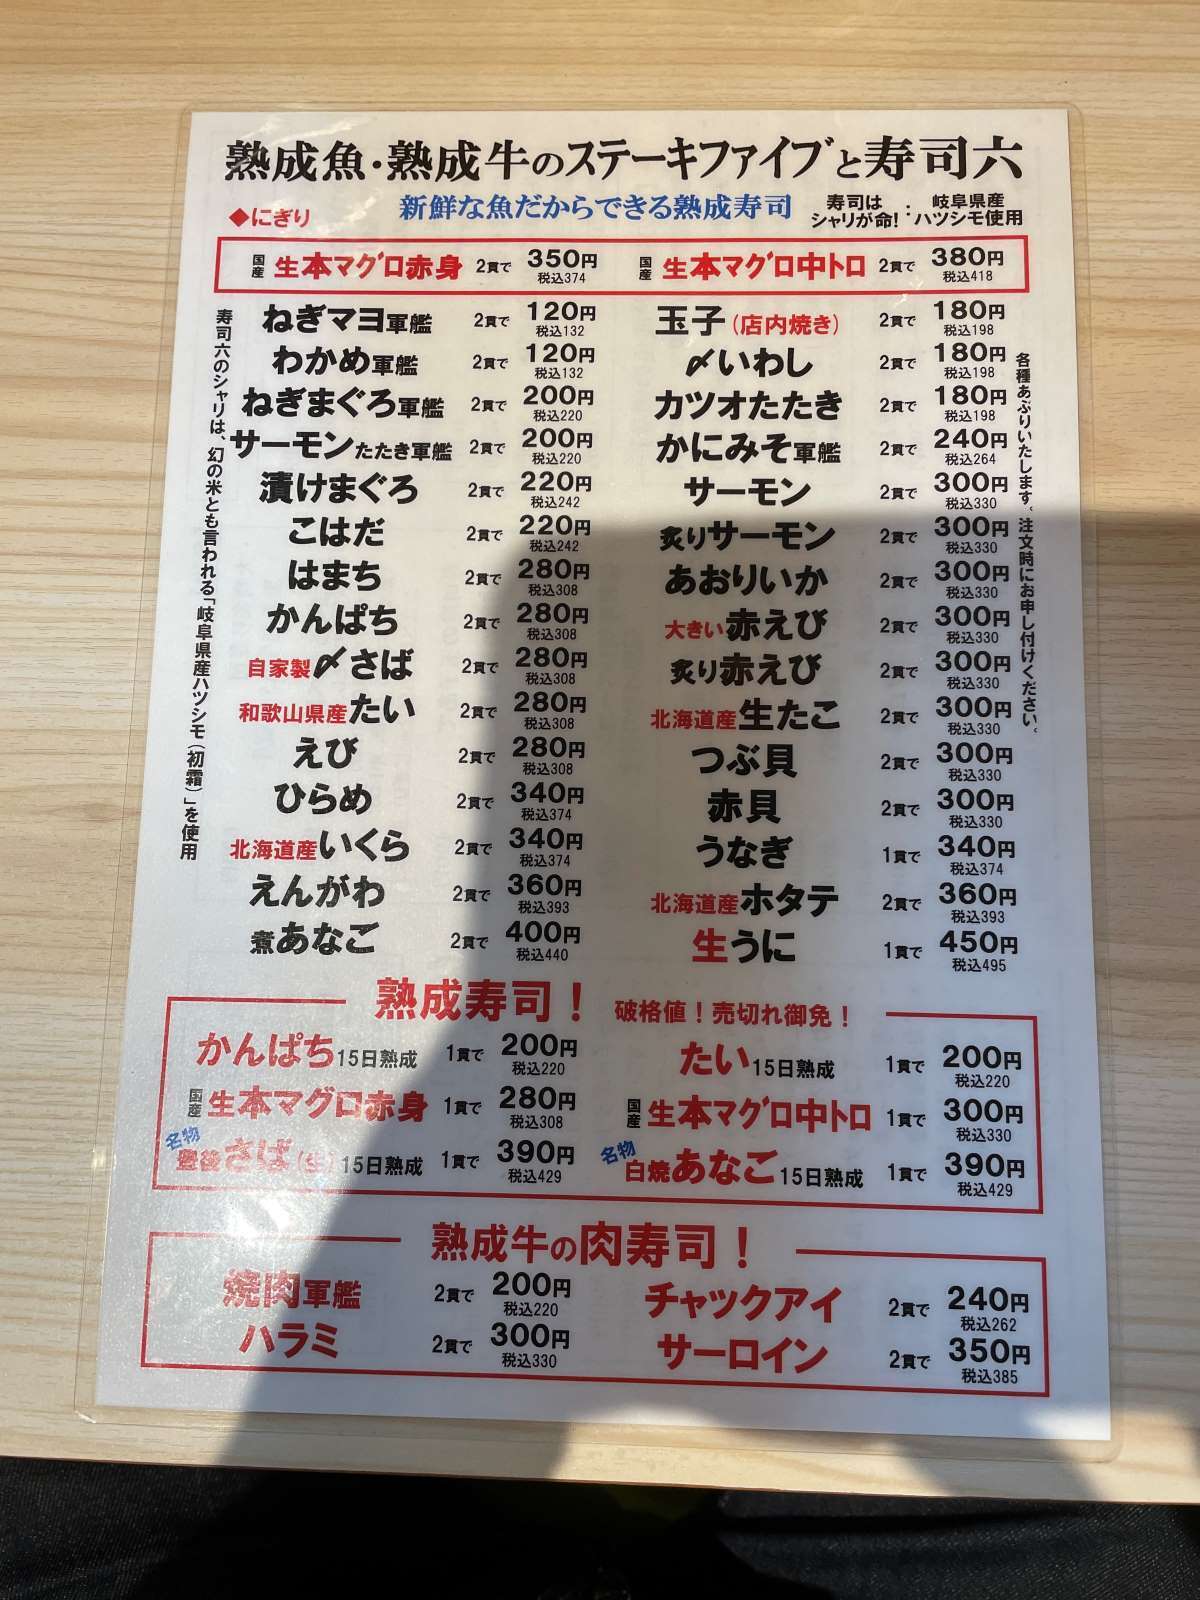 熟成魚・熟成牛のステーキファイブと寿司六
新鮮な魚だからできる熟成寿司
寿司はシャリが命！：岐阜県産ハツシモ使用
◆にぎり
国産 生本マグロ赤身 2貫で 350円 税込374
国産 生本マグロ中トロ 2貫で 380円 税込418
寿司六のシャリは、幻の米とも言われる「岐阜県産ハツシモ（初霜）」を使用
ねぎマヨ軍艦 2貫で 120円 税込132
わかめ軍艦 2貫で 120円 税込132
ねぎまぐろ軍艦 2貫で 200円 税込220
サーモンたたき軍艦 2貫で 200円 税込220
漬けまぐろ 2貫で 220円 税込242
こはだ 2貫で 220円 税込242
はまち 2貫で 280円 税込308
かんぱち 2貫で 280円 税込308
自家製〆さば 2貫で 280円 税込308
和歌山県産たい 2貫で 280円 税込308
えび 2貫で 280円 税込308
ひらめ 2貫で 340円 税込374
北海道産いくら 2貫で 340円 税込374
えんがわ 2貫で 360円 税込393
煮あなご 2貫で 400円 税込440
玉子(店内焼き) 2貫で 180円 税込198
〆いわし 2貫で 180円 税込198
カツオたたき 2貫で 180円 税込198
かにみそ軍艦 2貫で 240円 税込264
サーモン 2貫で 300円 税込330
炙りサーモン 2貫で 300円 税込330
あおりいか 2貫で 300円 税込330
大きい赤えび 2貫で 300円 税込330
炙り赤えび 2貫で 300円 税込330
北海道産生たこ 2貫で 300円 税込330
つぶ貝 2貫で 300円 税込330
赤貝 2貫で 300円 税込330
うなぎ 1貫で 340円 税込374
北海道産ホタテ 2貫で 360円 税込393
生うに 1貫で 450円 税込495
各種あぶりいたします。注文時にお申し付けください。
熟成寿司！ 破格値！売切れ御免！
かんぱち15日熟成 1貫で 200円 税込220
国産 生本マグロ赤身 1貫で 280円 税込308
名物 豊後さば(生)15日熟成 1貫で 390円 税込429
たい15日熟成 1貫で 200円 税込220
国産 生本マグロ中トロ 1貫で 300円 税込330
名物 白焼あなご15日熟成 1貫で 390円 税込429
熟成牛の肉寿司！
焼肉軍艦 2貫で 200円 税込220
ハラミ 2貫で 300円 税込330
チャックアイ 2貫で 240円 税込262
サーロイン 2貫で 350円 税込385